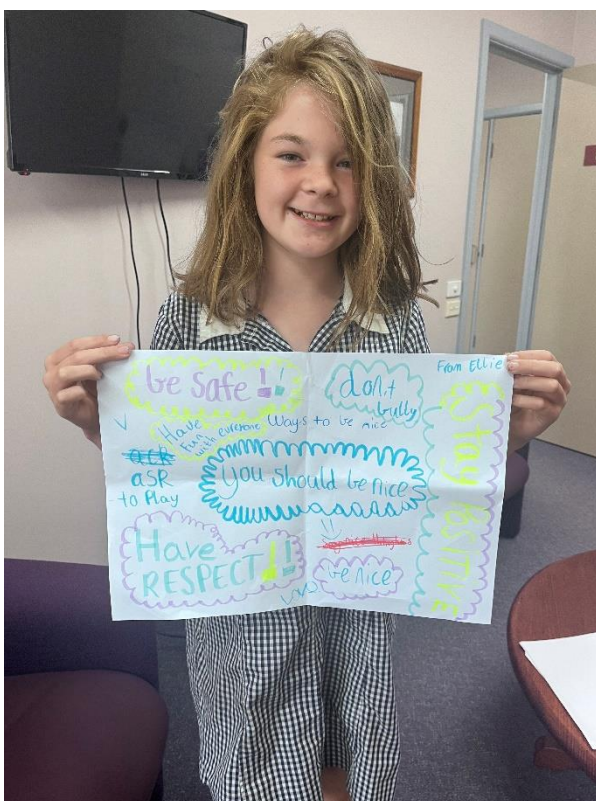 be safe!!
don,t
bully
From Ellie
Have
Fun
with everyone
Ways to be nice
asR
to Play
You should be nice
Stay POSITIVE
Have
RESPECT!!
be nice